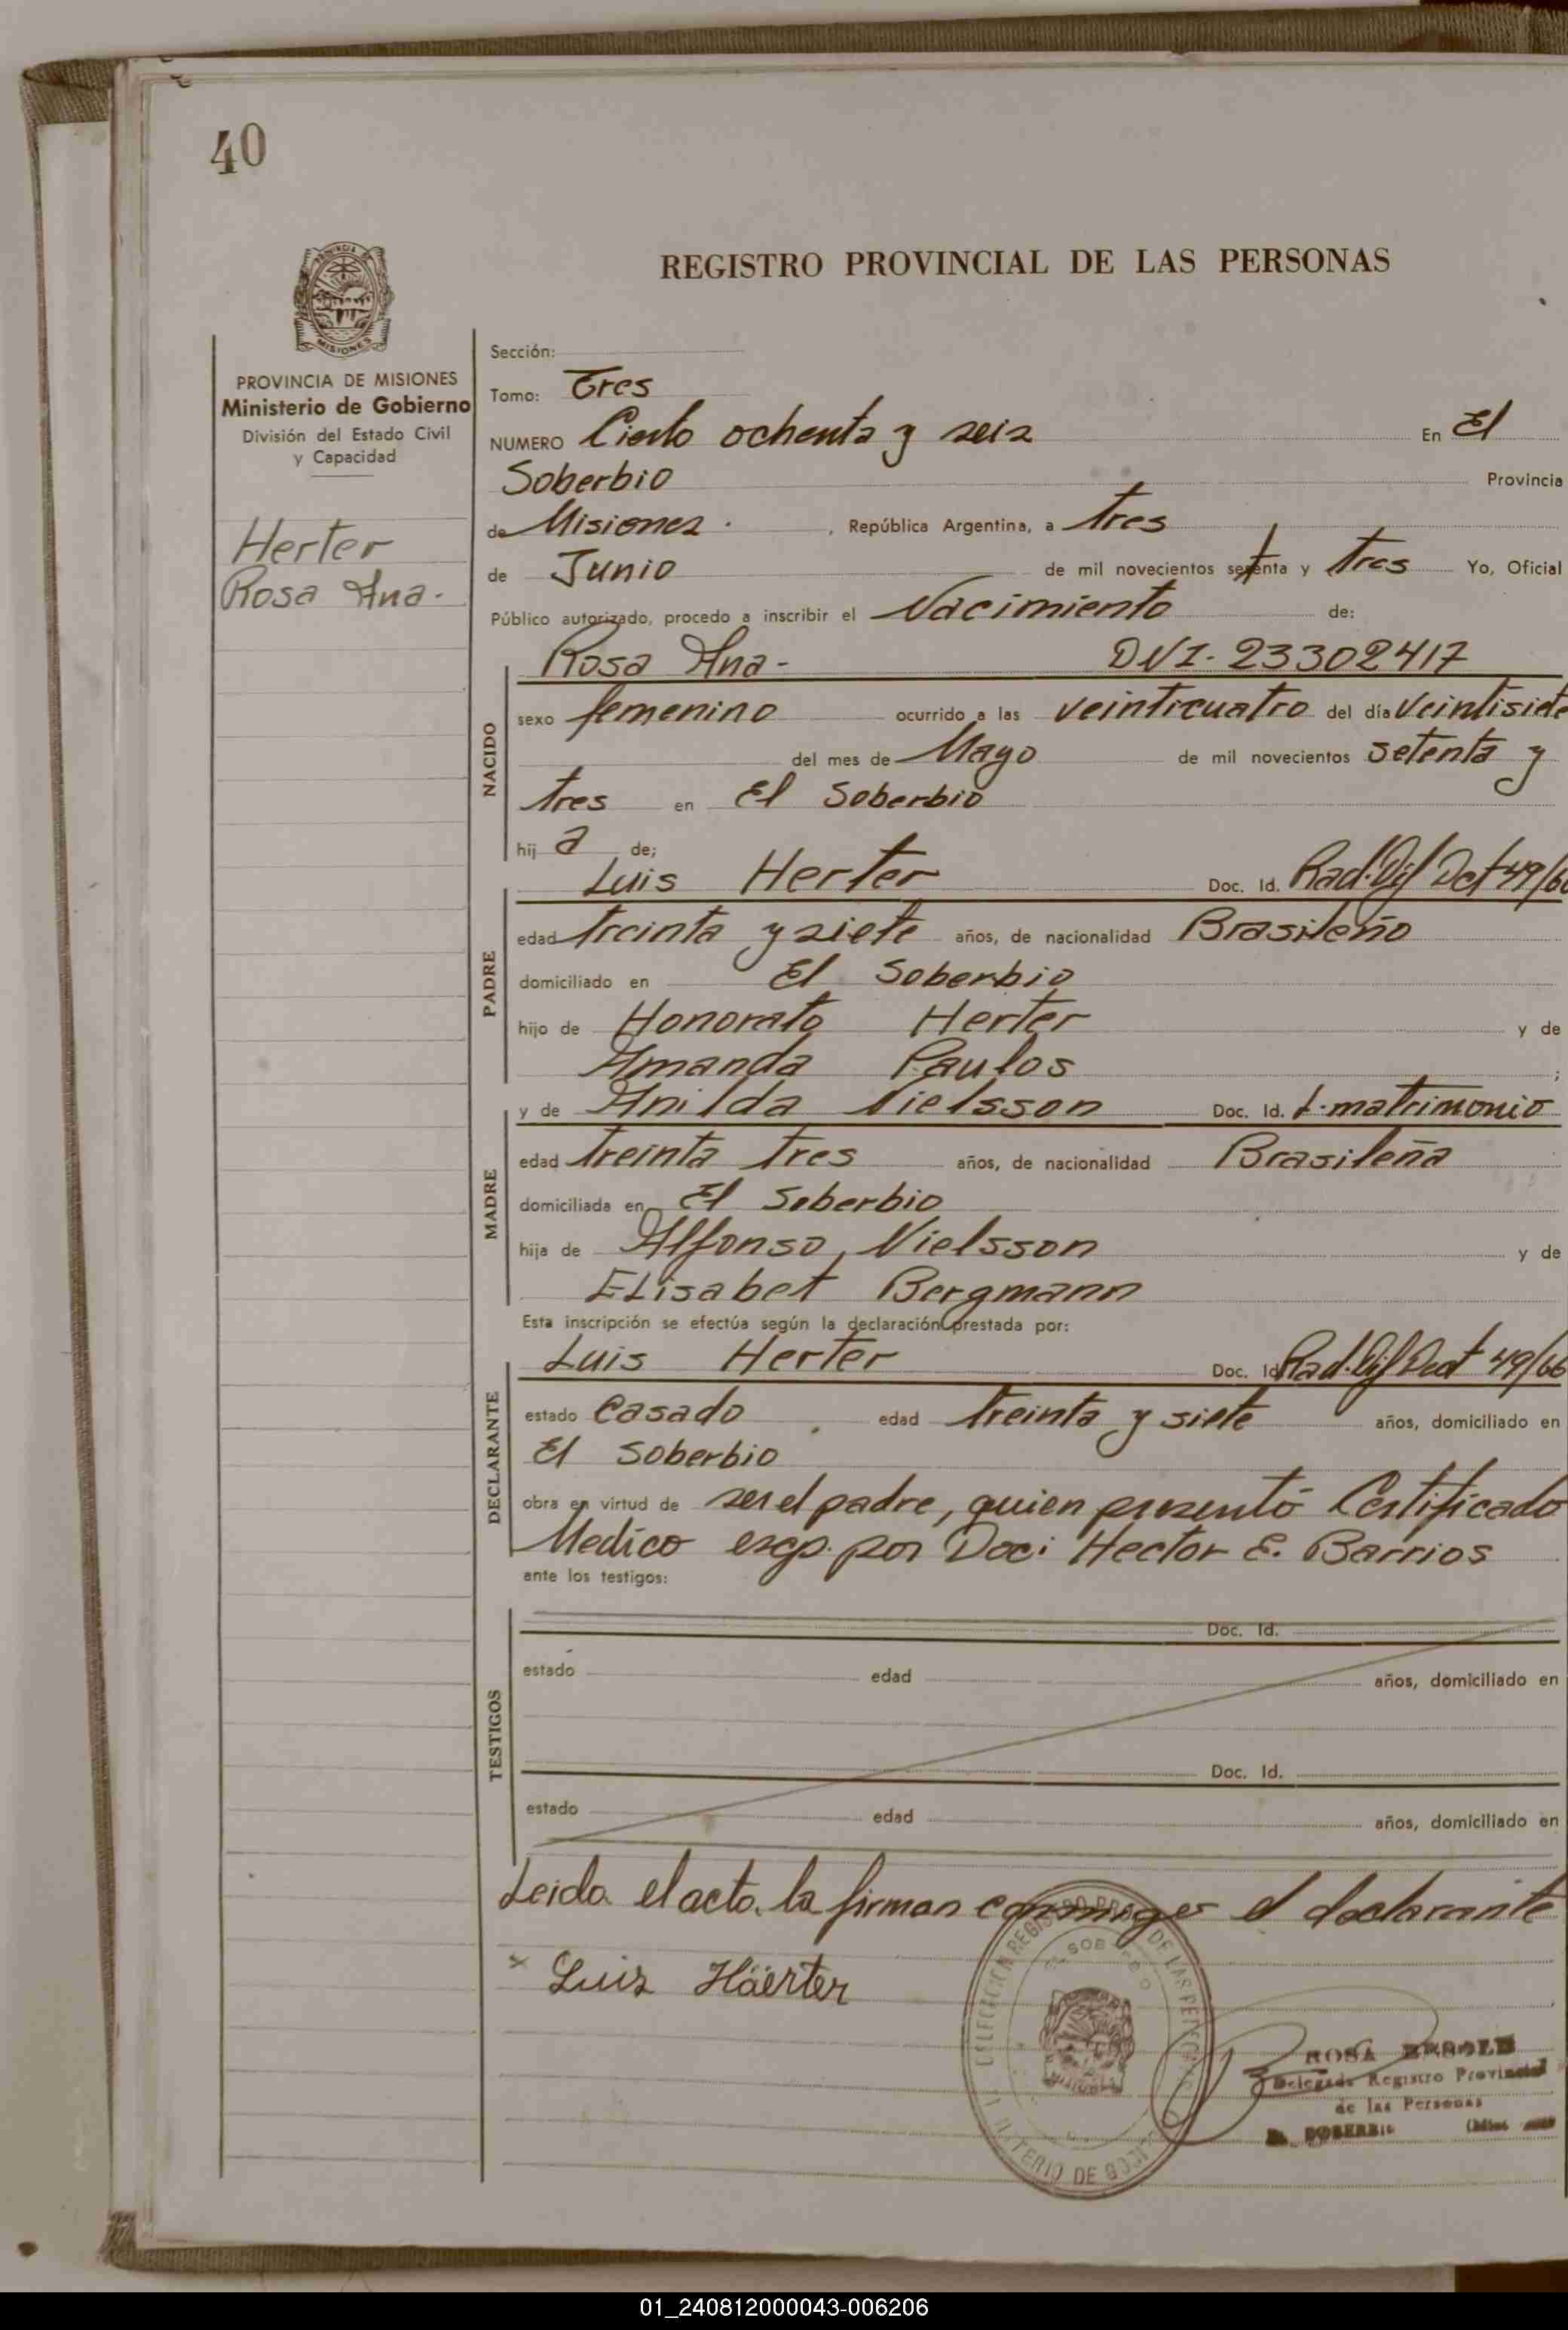 40
PROVINCIA
MISIONES
PROVINCIA DE MISIONES
Ministerio de Gobierno
División del Estado Civil
y Capacidad
Herter
Rosa Ana.
REGISTRO PROVINCIAL DE LAS PERSONAS
Sección:
Tomo: Tres
NUMERO Ciento ochenta y seis En El
Soberbio Provincia
de Misiones. , República Argentina, a tres
de Junio de mil novecientos setenta y tres Yo, Oficial
Público autorizado, procedo a inscribir el Nacimiento de:
NACIDO
Rosa Ana- DNI. 23302417
sexo femenino ocurrido a las veinticuatro del día Veintisiete
del mes de Mayo de mil novecientos setenta y
tres en El Soberbio
hij a de;
PADRE
Luis Herter Doc. Id. Rad. Dct 49/66
edad treinta y siete años, de nacionalidad Brasileño
domiciliado en El Soberbio
hijo de Honorato Herter y de
Amanda Paulos ;
MADRE
y de Anilda Nielsson Doc. Id. L. matrimonio
edad treinta tres años, de nacionalidad Brasileña
domiciliada en El Soberbio
hija de Alfonso Nielsson y de
Elisabet Bergmann
Esta inscripción se efectúa según la declaración prestada por:
DECLARANTE
Luis Herter Doc. Id. Rad. 49/66
estado Casado edad treinta y siete años, domiciliado en
El Soberbio
obra en virtud de ser el padre, quien presentó Certificado
Medico exp. por Doc: Hector E. Barrios
ante los testigos:
TESTIGOS
Doc. Id.
estado edad años, domiciliado en
Doc. Id.
estado edad años, domiciliado en
Leida el acto, la firman conmigo el declarante
x Luis Häerter
DELEGACION REGISTRO PROV. DE LAS PERSONAS
EL SOBERBIO
MINISTERIO DE GOBIERNO
ROSA
Delegada Registro Provincial
de las Personas
EL SOBERBIO
01_240812000043-006206